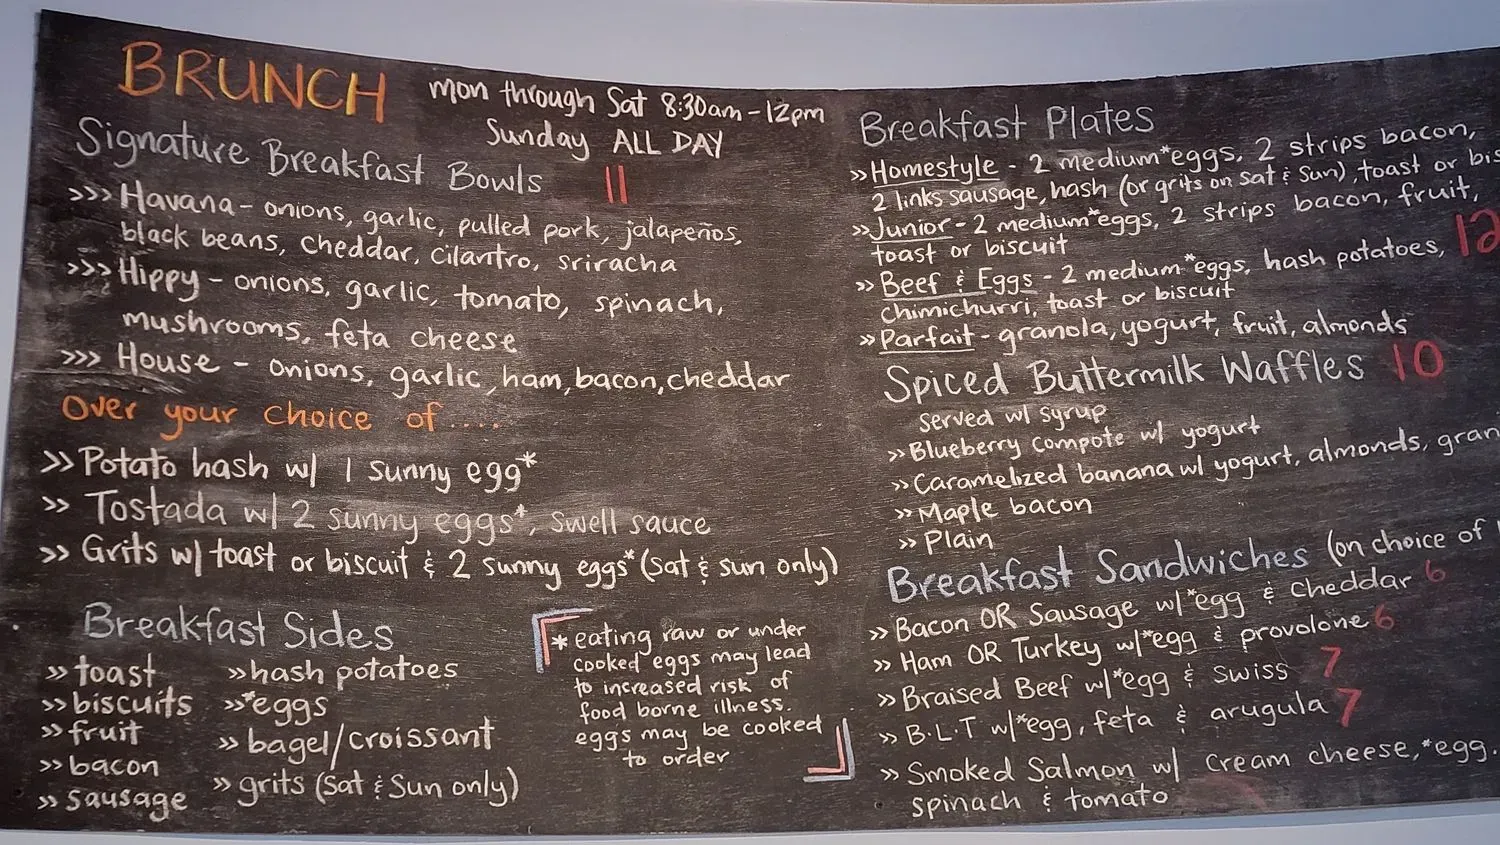 BRUNCH mon through Sat 8:30am-12pm
Sunday ALL DAY
Signature Breakfast Bowls 11
>>> Havana - onions, garlic, pulled pork, jalapeños,
black beans, cheddar, cilantro, sriracha
>>> Hippy - onions, garlic, tomato, spinach,
mushrooms, feta cheese
>>> House - onions, garlic, ham, bacon, cheddar
Over your choice of.....
>> Potato hash w/ 1 sunny egg*
>> Tostada w/ 2 sunny eggs*, swell sauce
>> Grits w/ toast or biscuit & 2 sunny eggs* (sat & sun only)
Breakfast Sides
>> toast
>> biscuits
>> fruit
>> bacon
>> sausage
>> hash potatoes
>> *eggs
>> bagel/croissant
>> grits (Sat & Sun only)
* eating raw or under
cooked eggs may lead
to increased risk of
food borne illness.
eggs may be cooked
to order
Breakfast Plates
>> Homestyle - 2 medium *eggs, 2 strips bacon,
2 links sausage, hash (or grits on sat & sun), toast or
>> Junior - 2 medium *eggs, 2 strips bacon, fruit,
toast or biscuit
>> Beef & Eggs - 2 medium *eggs, hash potatoes, 12
chimichurri, toast or biscuit
>> Parfait - granola, yogurt, fruit, almonds
Spiced Buttermilk Waffles 10
served w/ syrup
>> Blueberry compote w/ yogurt
>> Caramelized banana w/ yogurt, almonds,
>> Maple bacon
>> Plain
Breakfast Sandwiches (on choice of
>> Bacon OR Sausage w/ *egg & cheddar 6
>> Ham OR Turkey w/ *egg & provolone 6
>> Braised Beef w/ *egg & swiss 7
>> B.L.T w/ *egg, feta & arugula 7
>> Smoked Salmon w/ cream cheese, *egg.
spinach & tomato